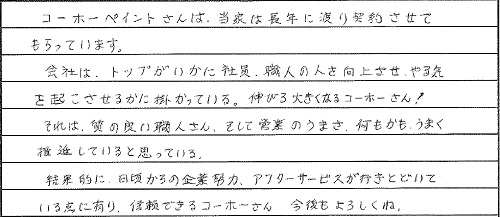 コーホーペイントさんは、当家は長年に渡り契約させて
もらっています。
会社は、トップがいかに社員、職人の人を向上させ、やる気
を起こさせるかに掛かっている。伸びる大きくなるコーホーさん!
それは、質の良い職人さん、そして営業のうまさ、何もかも、うまく
推進していると思っている。
結果的に、日頃からの企業努力、アフターサービスが行きとどいて
いる点に有り、信頼できるコーホーさん 今後もよろしくね。